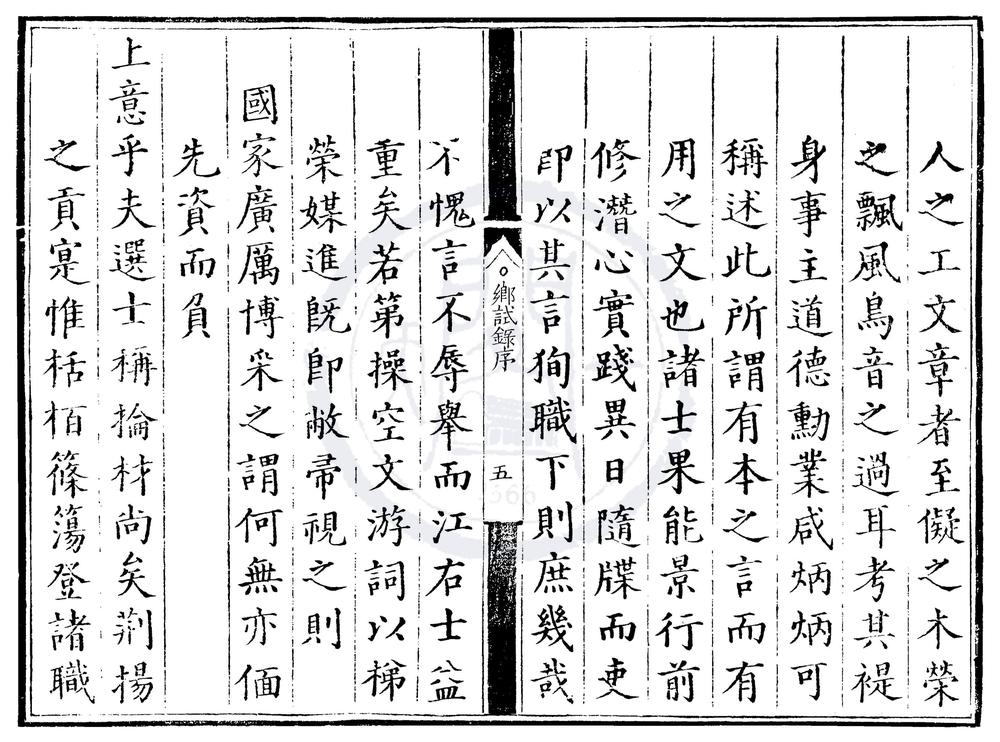 人之工文章者至儗之木榮
之飄風鳥音之過耳考其褆
身事主道德勳業咸炳炳可
稱述此所謂有本之言而有
用之文也諸士果能景行前
修潛心實踐異日隨牒而吏
即以其言狥職下則庶幾哉
鄉試錄序
五
不愧言不辱舉而江右士益
重矣若第操空文游詞以梯
榮媒進旣卽敝帚視之則
國家廣厲博采之謂何無亦偭
先資而負
上意乎夫選士稱掄材尚矣荆揚
之貢寔惟栝栢篠簜登諸職